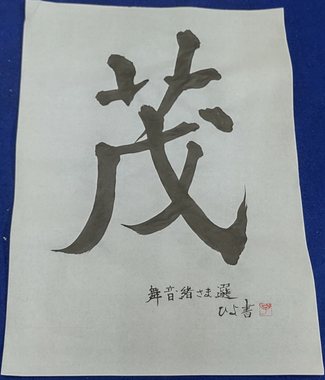 茂
舞音緒さま選
ひよ書